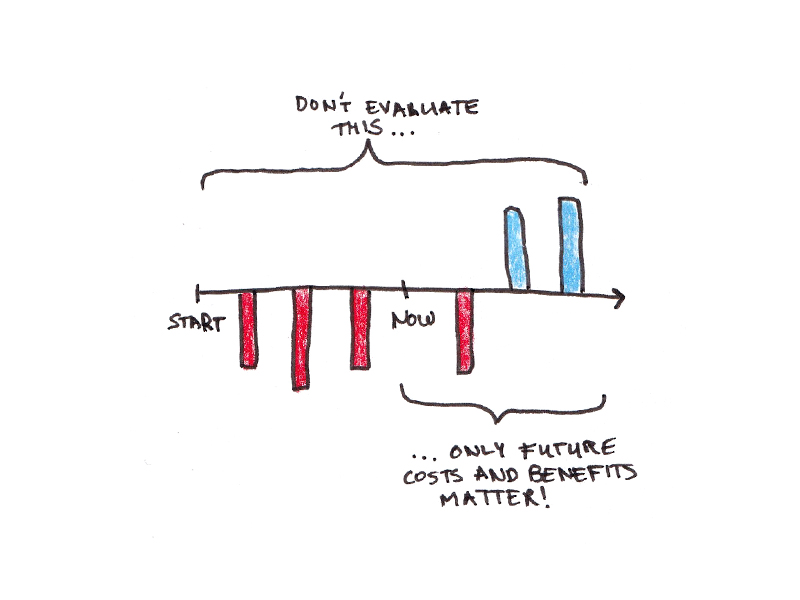 DON'T EVALUATE
THIS...
START
NOW
... ONLY FUTURE
COSTS AND BENEFITS
MATTER!